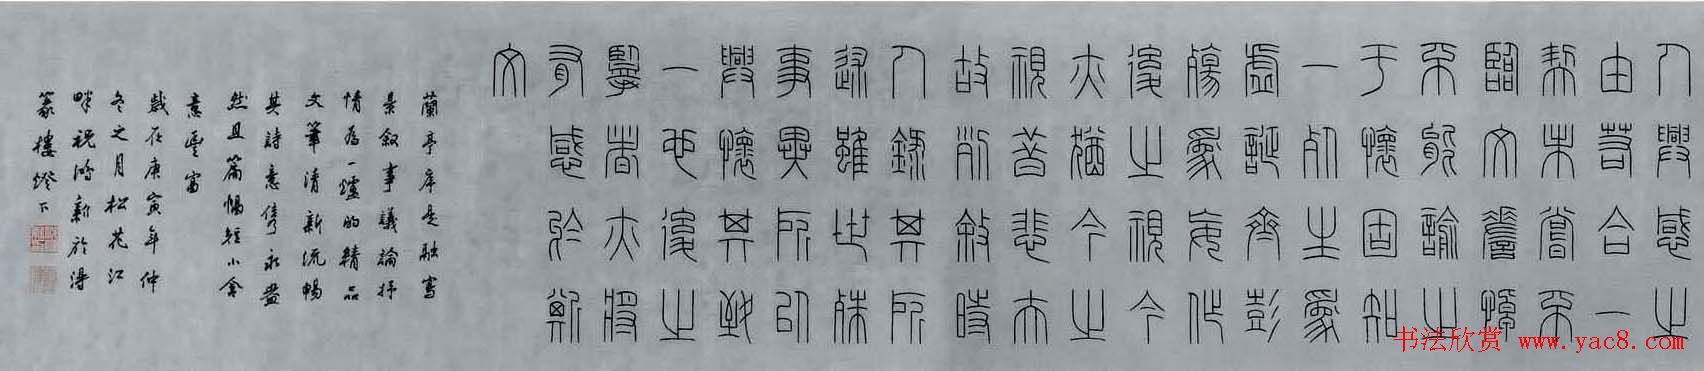 人興感之
由若合一
契未嘗不
臨文嗟悼
不能喻之
于懷固知
一死生爲
虛誕齊彭
殤爲妄作
後之視今
亦猶今之
視昔悲夫
故列敘時
人錄其所
述雖世殊
事異所以
興懷其致
一也後之
擥者亦將
有感於斯
文
蘭亭序是融寫
景敘事議論抒
情為一爐的精品
文筆清新流暢
其詩意雋永盎
然且篇幅短小含
意豐富
歲在庚寅年仲
冬之月松花江
畔祝鴻新於得
篆樓燈下
书法欣赏 www.yac8.com